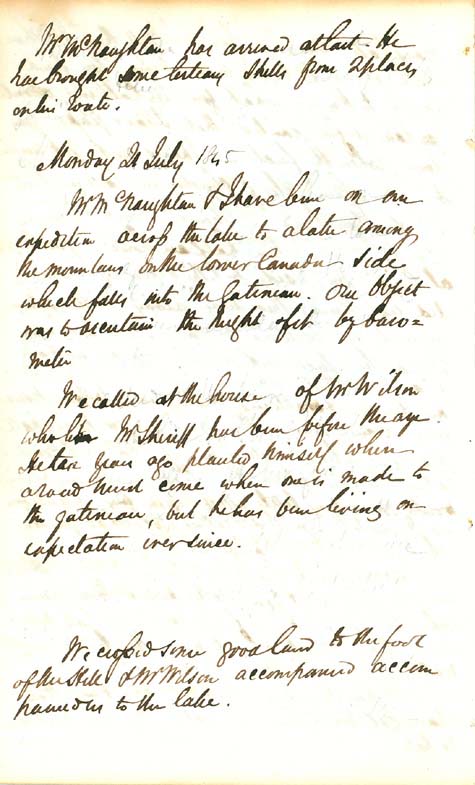 Mr McNaughton has arrived at last – He
has brought some tertiary shells from 2 places
on his route.
Monday 21 July 1845
Mr McNaughton & I have been on our
expedition across the lake to a lake among
the mountains on the lower Canada side
which falls into the Gatineau. Our object
was to ascertain the height of it by baro=
meter
We called at the house of Mr Wilson
who like Mr Sheriff has been before the age.
He ten years ago planted himself where
a road must come when one is made to
the gatineau, but he has been living on
expectation ever since.
We crossed some good land to the foot
of the Hill & Mr Wilson accompanied accom
panied us to the lake.